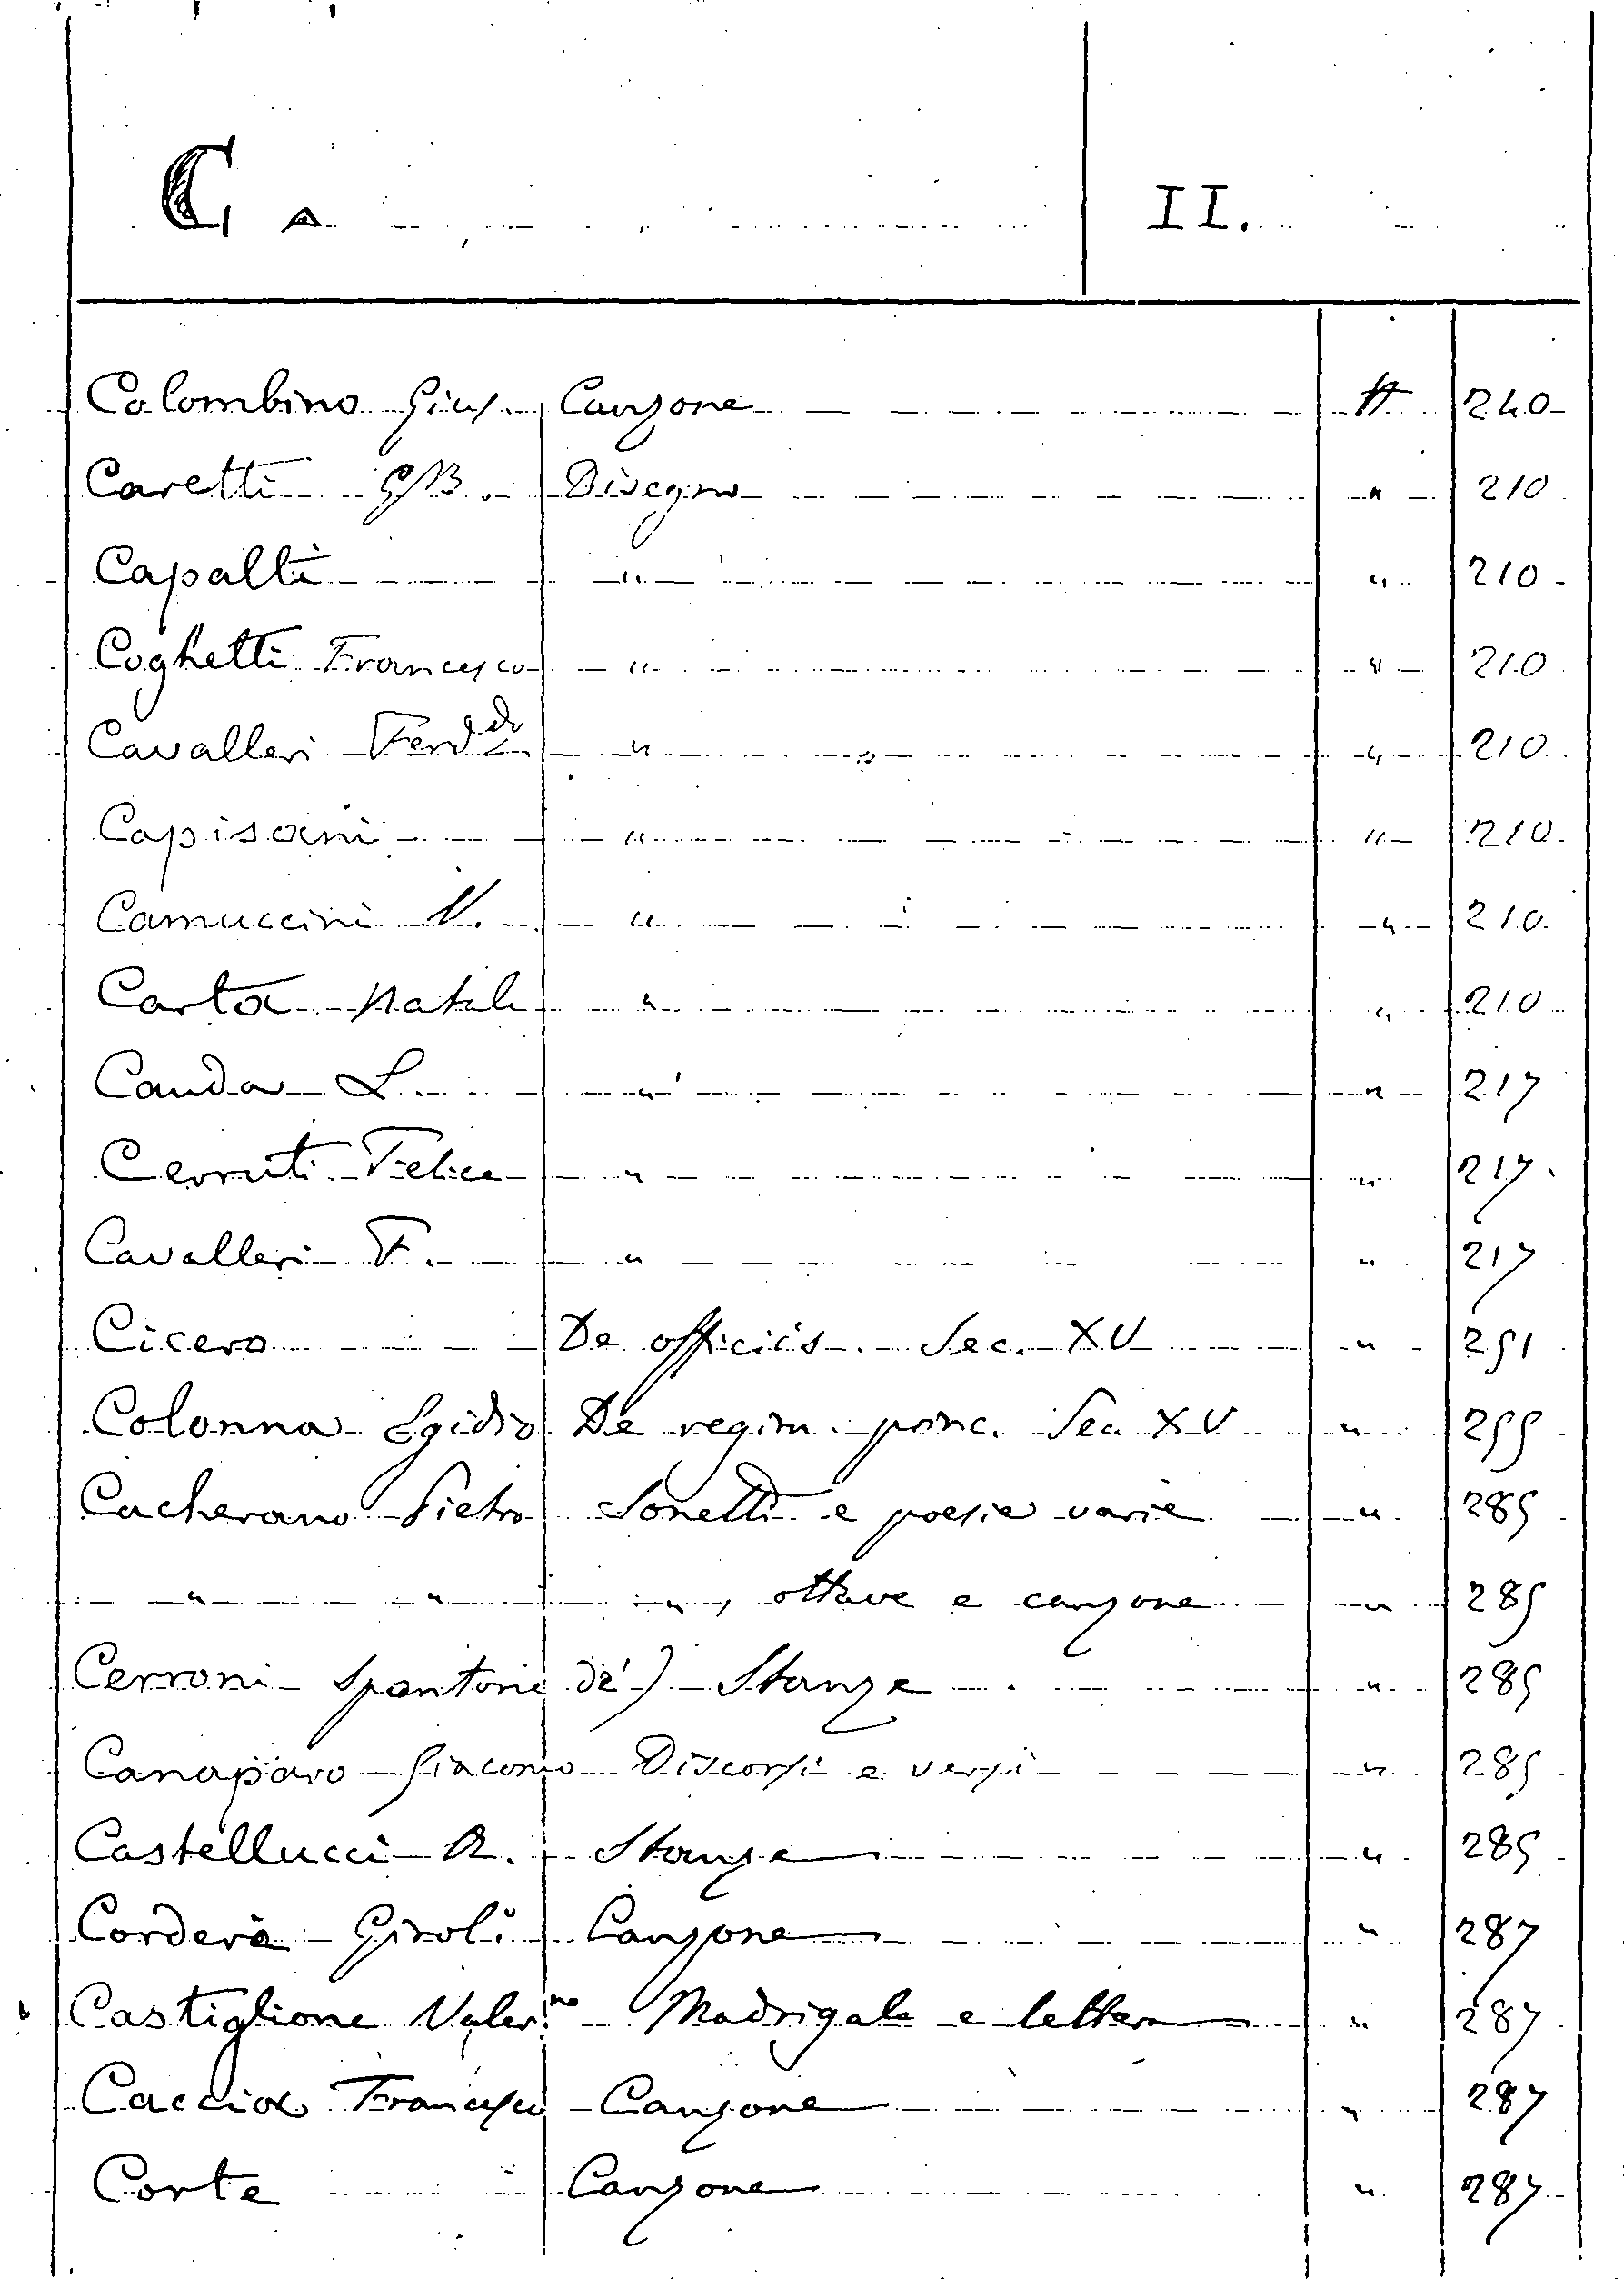 C A II.
Colombino Gius. Canzone H 240
Caretti GB. Disegno " 210
Capalti " " 210
Coghetti Francesco " " 210
Cavalleri Ferd.do " " 210
Capisani " " 210
Camuccini V. " " 210
Carta Natale " " 210
Cauda L. " " 217
Cerruti Felice " " 217
Cavalleri F. " " 217
Cicero De officiis. Sec. XV " 251
Colonna Egidio De regim. princ. Sec. XV " 255
Cacherano Pietro Sonetti e poesie varie " 285
" " ", ottave e canzone " 285
Cerroni Spantoni de') Stanze " 285
Canaparo Giacomo Discorsi e versi " 285
Castellucci A. Stanze " 285
Cordera Giroli. Canzone " 287
Castiglione Valer.no Madrigale e lettera " 287
Caccia Francesco Canzone " 287
Corte Canzone " 287